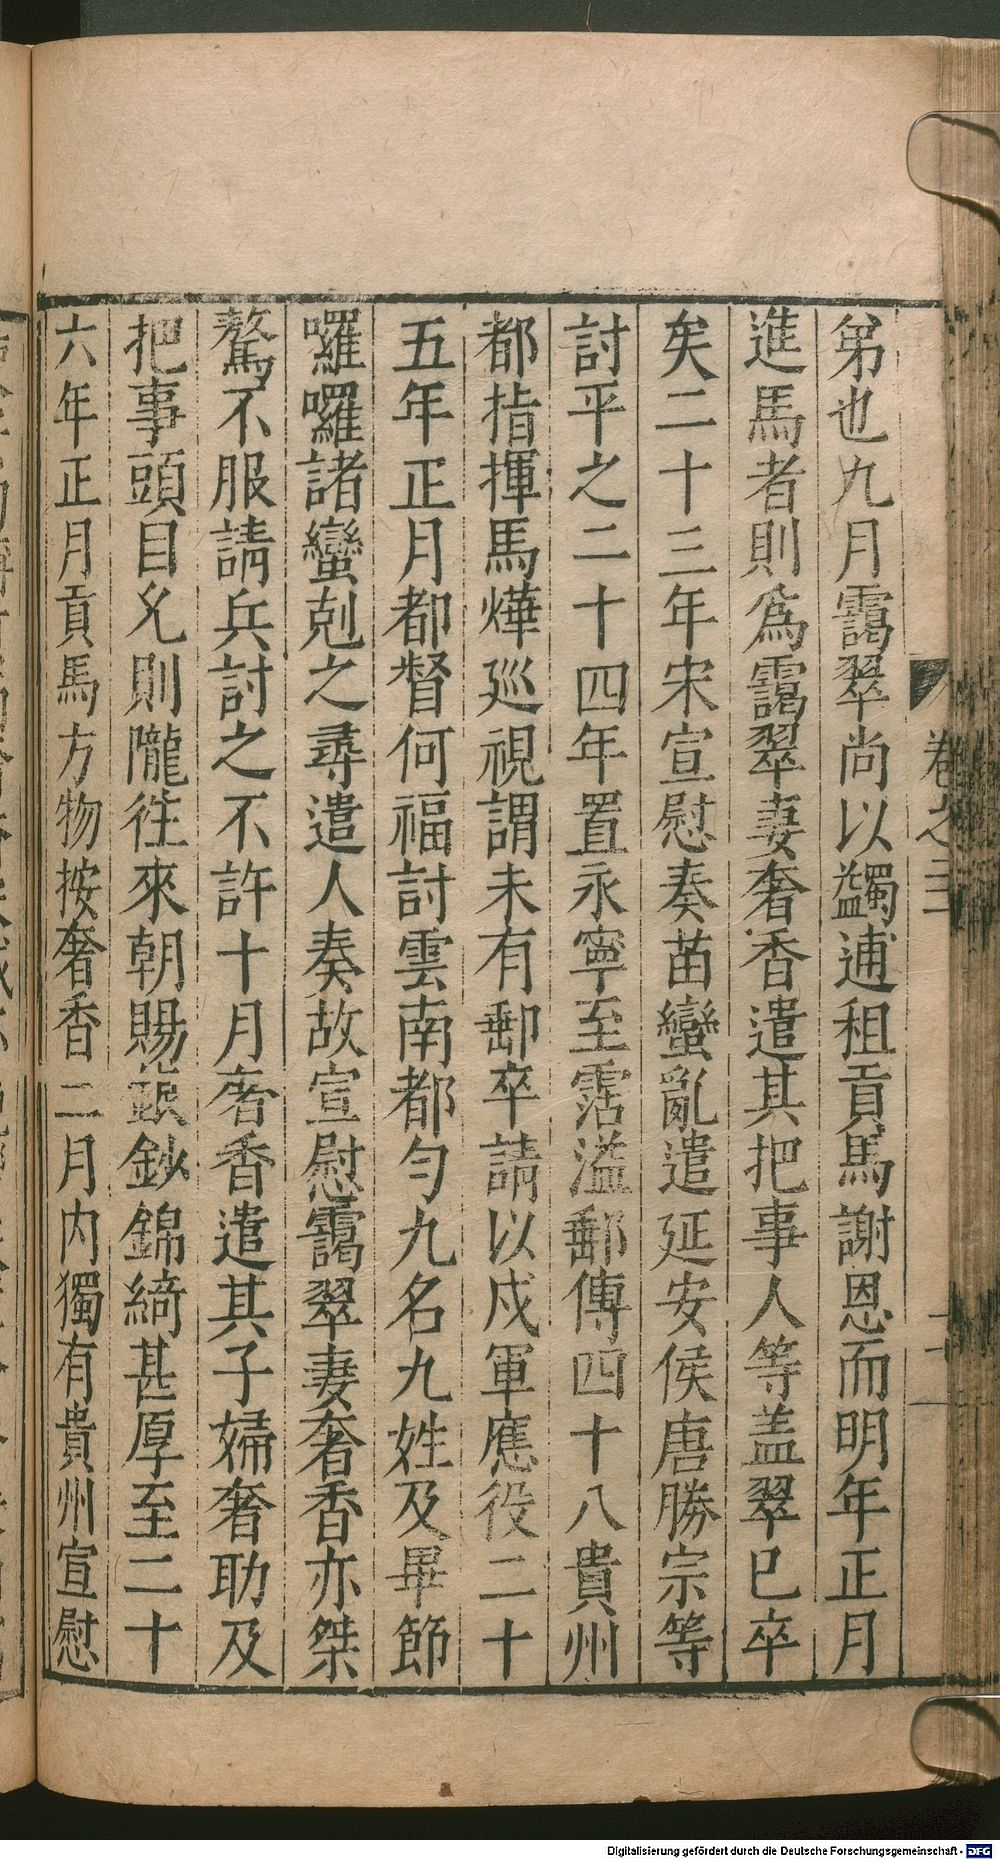 弟也九月靄翠尚以蠲逋租貢馬謝恩而明年正月
進馬者則為靄翠妻奢香遣其把事人等蓋翠已卒
矣二十三年宋宣慰奏苗蠻亂遣延安侯唐勝宗等
討平之二十四年置永寧至霑溢郵傳四十八貴州
都指揮馬燁巡視謂未有郵卒請以戍軍應役二十
五年正月都督何福討雲南都勻九名九姓及畢節
囉囉諸蠻剋之尋遣人奏故宣慰靄翠妻奢香亦桀
驁不服請兵討之不許十月奢香遣其子婦奢助及
把事頭目允則隴往來朝賜銀鈔錦綺甚厚至二十
六年正月貢馬方物按奢香二月內獨有貴州宣慰
卷之三
二十
Digitalisierung gefördert durch die Deutsche Forschungsgemeinschaft - DFG